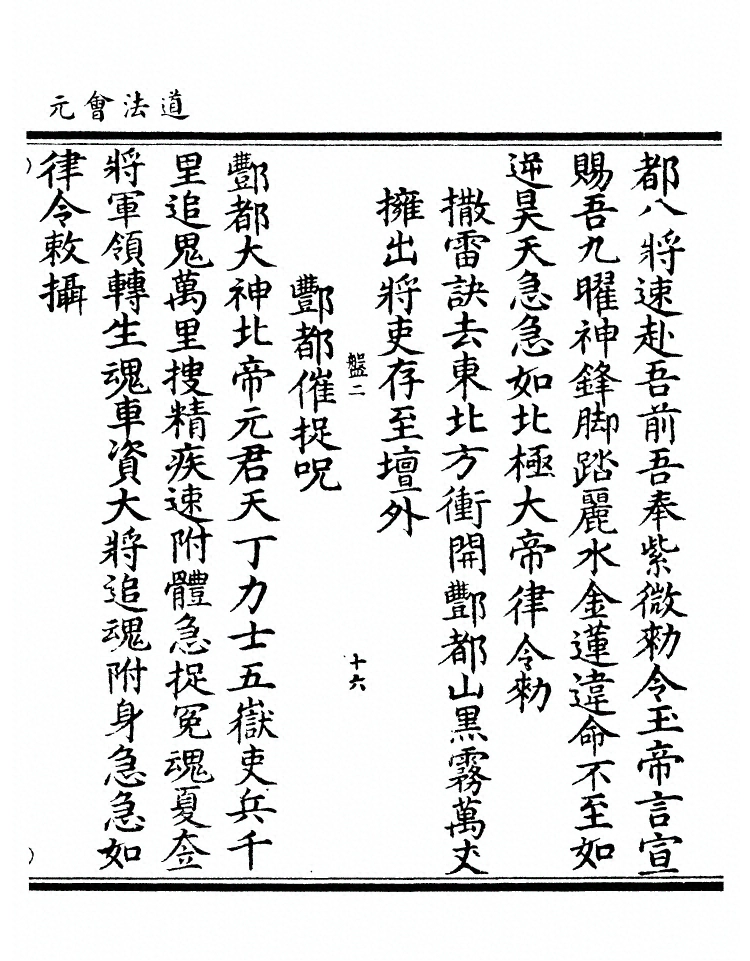 道法會元
都八將速赴吾前吾奉紫微勑令玉帝言宣
賜吾九曜神鋒脚踏麗水金蓮違命不至如
逆昊天急急如北極大帝律令勑
撒雷訣去東北方衝開酆都山黑霧萬丈
擁出將吏存至壇外
盤二
十六
酆都催捉呪
酆都大神北帝元君天丁力士五嶽吏兵千
里追鬼萬里搜精疾速附體急捉冤魂夏
將軍領轉生魂車資大將追魂附身急急如
律令敕攝